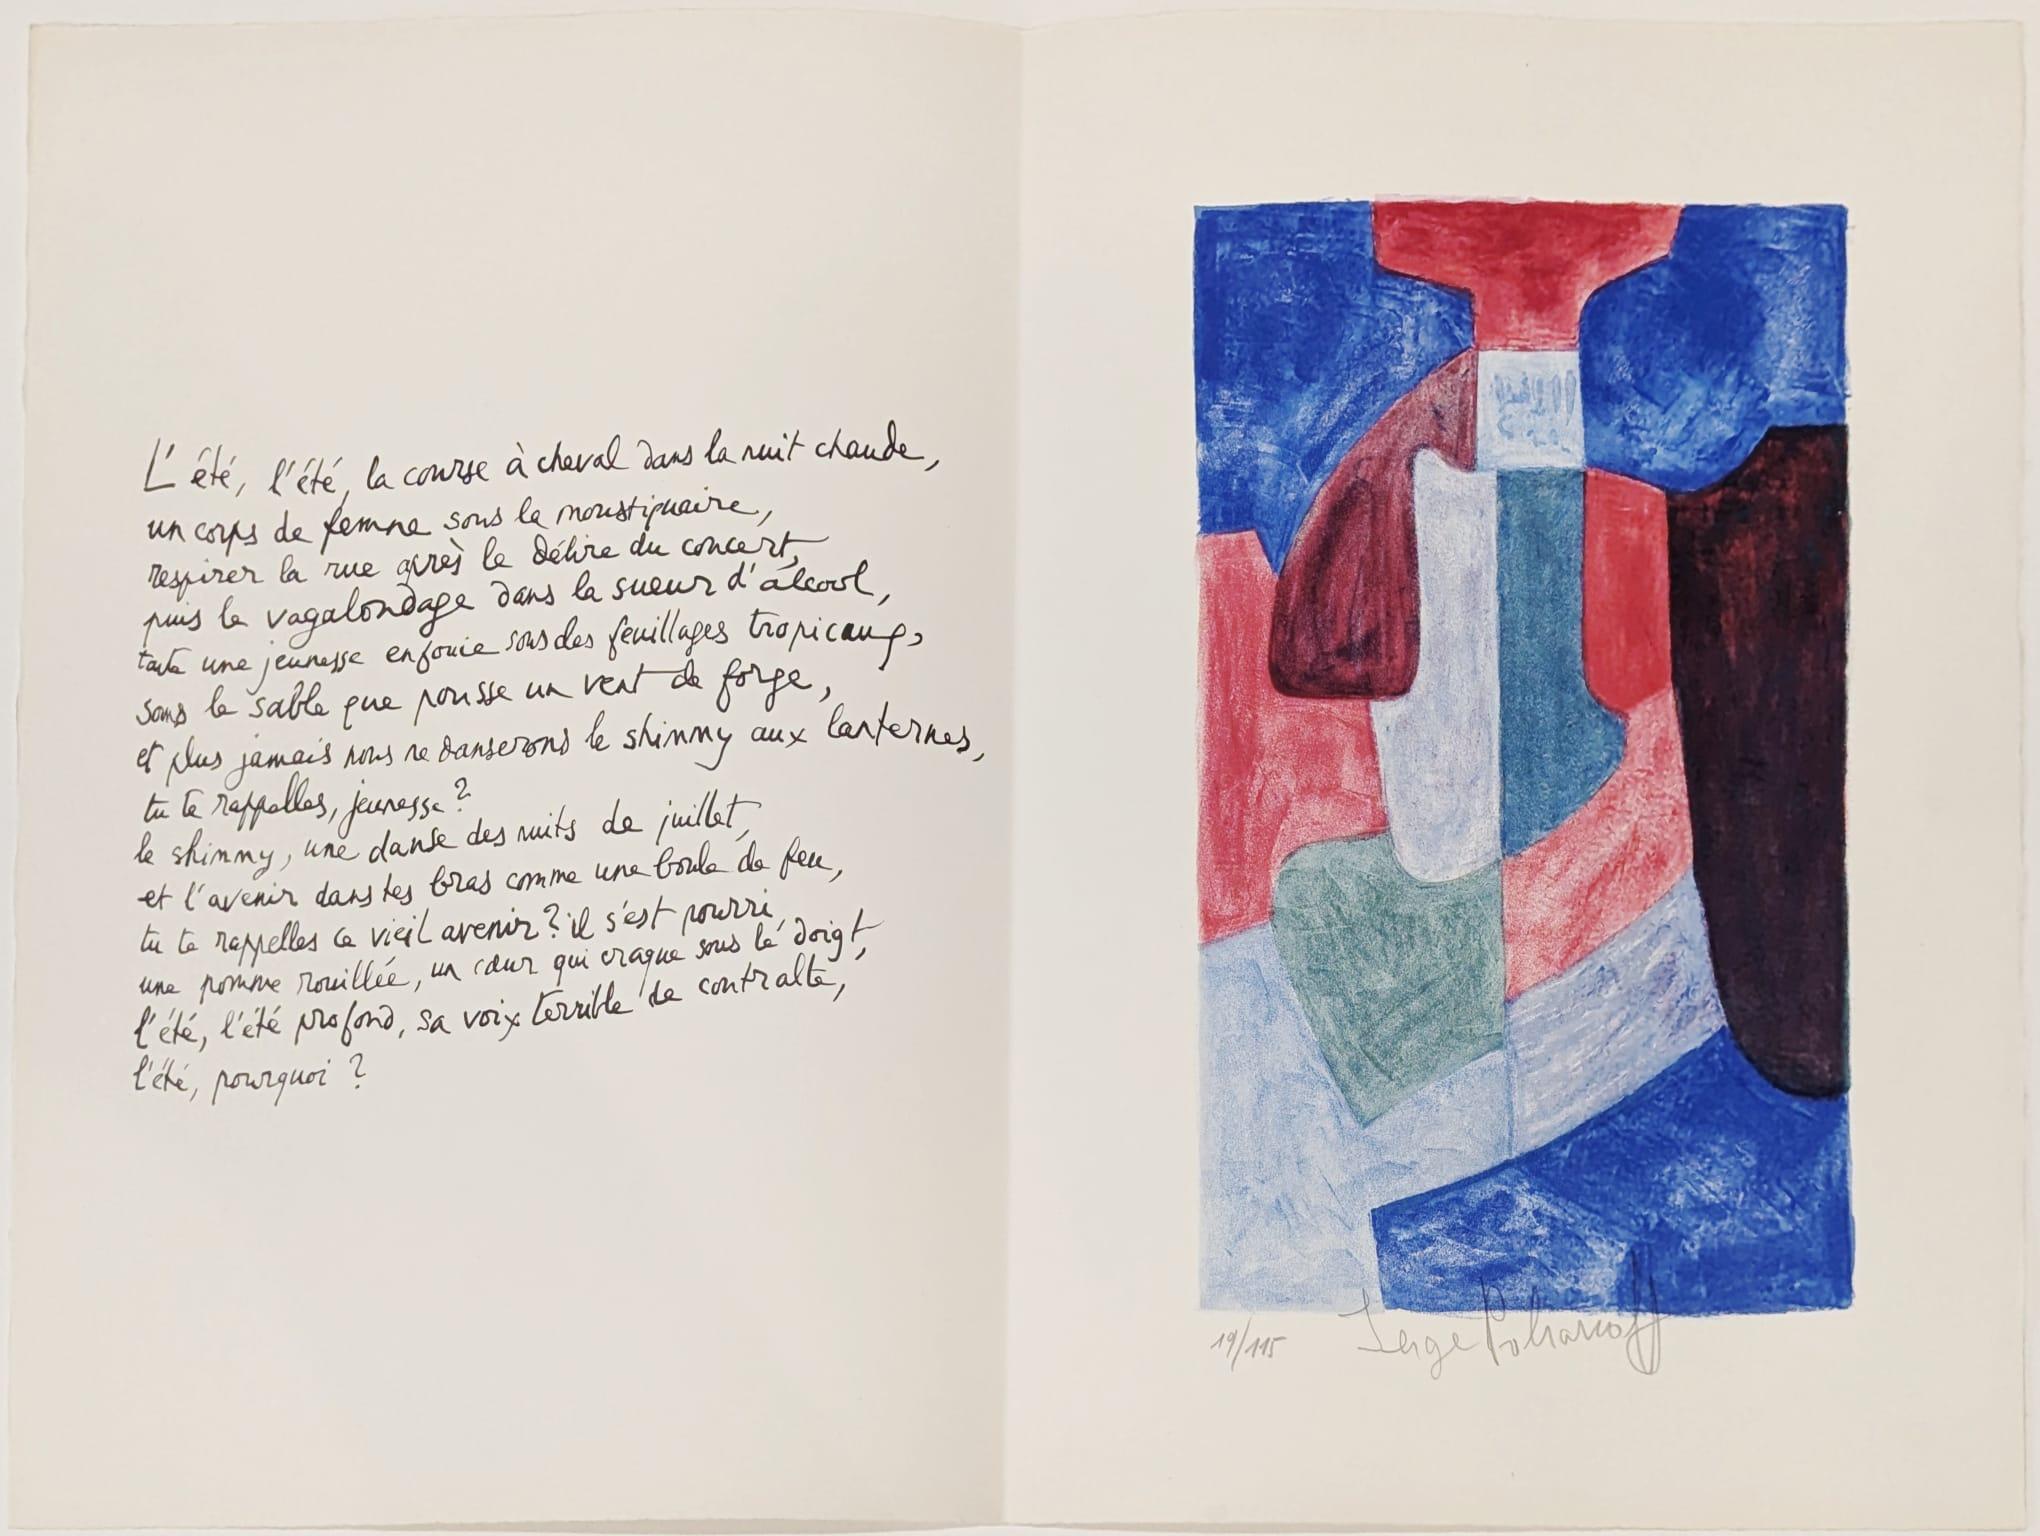 L'été, l'été, la course à cheval dans la nuit chaude,
un corps de femme sous la moustiquaire,
respirer la rue après le délire du concert,
puis le vagabondage dans la sueur d'alcool,
toute une jeunesse enfouie sous des feuillages tropicaux,
sous le sable que pousse un vent de forge,
et plus jamais nous ne danserons le shimmy aux lanternes,
tu te rappelles, jeunesse ?
le shimmy, une danse des nuits de juillet,
et l'avenir dans tes bras comme une boule de feu,
tu te rappelles ce vieil avenir ? il s'est pourri,
une pomme rouillée, un cœur qui craque sous le doigt,
l'été, l'été profond, sa voix terrible de contralte,
l'été, pourquoi ?
19/115
Serge Poliakoff